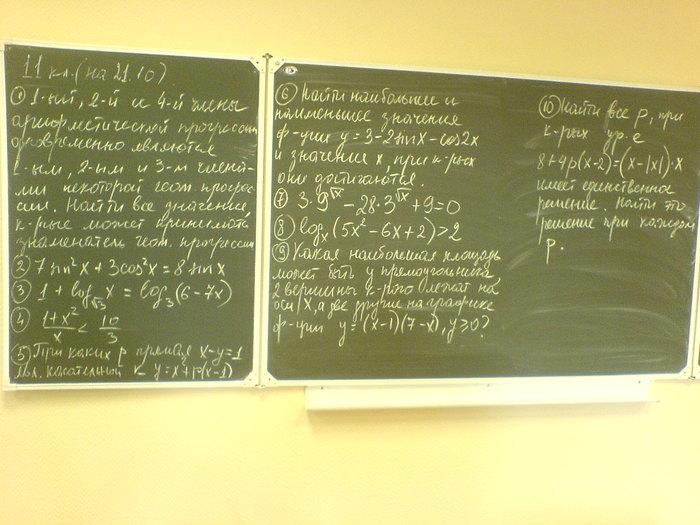 11 кл. (на 21.10)
① 1-ый, 2-й и 4-й члены
арифметической прогрессии
одновременно являются
1-ым, 2-ым и 3-м члена-
ми некоторой геом. прогрес-
сии. Найти все значения,
к-рые может принимать
знаменатель геом. прогрессии
② 7 sin²x + 3cos²x = 8 sin x
③ 1 + log_√3 x = log₃(6 - 7x)
④ (1+x²)/x < 10/3
⑤ При каких p прямая x-y=1
явл. касательной к y=x²+p(x-1)
⑥ Найти наибольшее и
наименьшее значения
ф-ции y = 3 - 2 sin x - cos 2x
и значение x, при к-рых
они достигаются.
⑦ 3·9^√x - 28·3^√x + 9 = 0
⑧ log_x (5x² - 6x + 2) > 2
⑨ Какая наибольшая площадь
может быть у прямоугольника
2 вершины к-рого лежат на
оси X, а две другие на графике
ф-ции y = (x-1)(7-x), y ≥ 0?
⑩ Найти все p, при
к-рых ур-е
8+4p(x-2)=(x-|x|)·x
имеет единственное
решение. Найти это
решение при каждом
p.